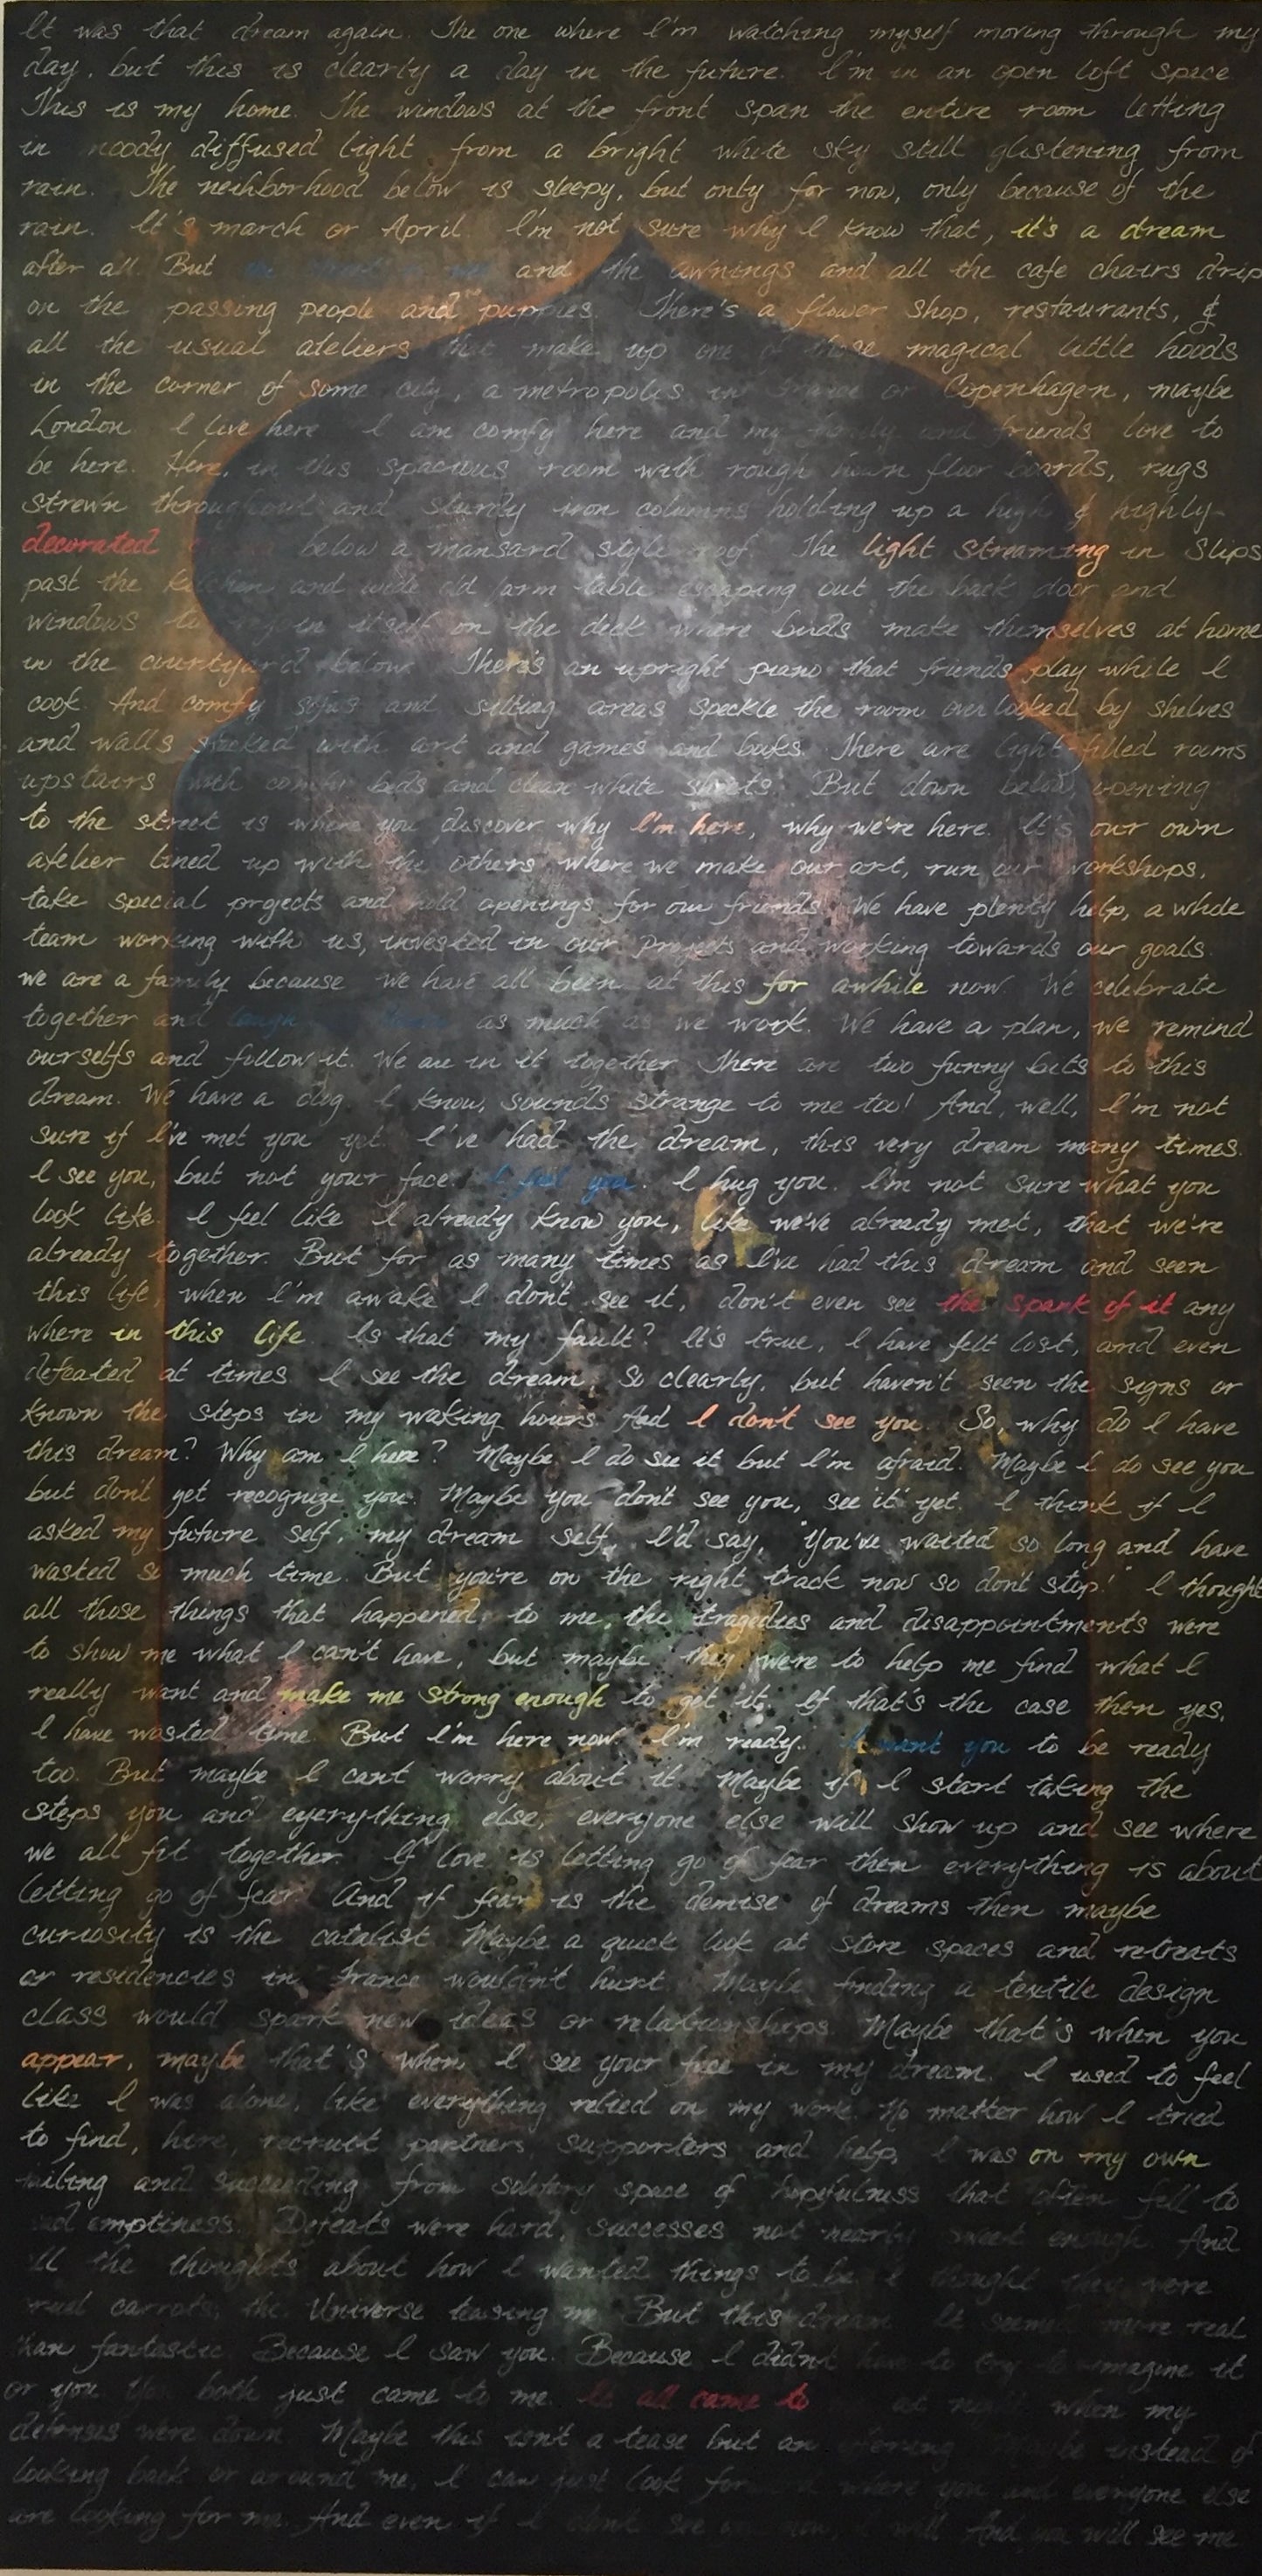 It was that dream again. The one where I'm watching myself moving through my
day, but this is clearly a day in the future. I'm in an open loft space
This is my home. The windows at the front span the entire room letting
in moody diffused light from a bright white sky still glistening from
rain. The neihborhood below is sleepy, but only for now, only because of the
rain. It's march or April. I'm not sure why I know that, it's a dream
after all. But the street is wet and the awnings and all the cafe chairs drip
on the passing people and puppies. There's a flower shop, restaurants, &
all the usual ateliers that make up one of those magical little hoods
in the corner of some city, a metropolis in France or Copenhagen, maybe
London. I live here I am comfy here and my family and friends love to
be here. Here, in this spacious room with rough hewn floor boards, rugs
strewn throughout and sturdy iron columns holding up a high & highly-
decorated below a mansard style roof. The light streaming in slips
past the kitchen and wide old farm table escaping out the back door and
windows to rejoin itself on the deck where birds make themselves at home
in the courtyard below. There's an upright piano that friends play while I
cook. And comfy sofas and sitting areas speckle the room overlooked by shelves
and walls stacked with art and games and books. There are light-filled rooms
upstairs with comfy beds and clean white sheets. But down below, opening
to the street is where you discover why I'm here, why we're here. It's our own
atelier lined up with the others where we make our art, run our workshops,
take special projects and hold openings for our friends. We have plenty help, a whole
team working with us, invested in our projects and working towards our goals.
we are a family because we have all been at this for awhile now. We celebrate
together and laugh as much as we work. We have a plan, we remind
ourselfs and follow it. We are in it together There are two funny bits to this
dream. We have a dog. I know, sounds strange to me too! And, well, I'm not
sure if I've met you yet. I've had the dream, this very dream many times.
I see you, but not your face. I feel you. I hug you. I'm not sure what you
look like. I feel like I already know you, like we've already met, that we're
already together. But for as many times as I've had this dream and seen
this life, when I'm awake I don't see it, don't even see the spark of it any
where in this life. Is that my fault? It's true, I have felt lost, and even
defeated at times I see the dream, so clearly, but haven't seen the signs or
known the steps in my waking hours And I don't see you. So, why do I have
this dream? Why am I here? Maybe I do see it but I'm afraid. Maybe I do see you
but don't yet recognize you. Maybe you don't see you, see 'it' yet. I think if I
asked my future self, my dream self, I'd say, "You've waited so long and have
wasted so much time. But you're on the right track now so don't stop!" I thought
all those things that happened to me, the tragedies and disappointments were
to show me what I can't have, but maybe they were to help me find what I
really want and make me strong enough to get it. If that's the case then yes,
I have wasted time. But I'm here now. I'm ready. I want you to be ready
too. But maybe I cant worry about it. Maybe if I start taking the
steps you and everything else, everyone else will show up and see where
we all fit together. If love is letting go of fear then everything is about
letting go of fear. And if fear is the demise of dreams then maybe
curiosity is the catalist. Maybe a quick look at store spaces and retreats
or residencies in France wouldn't hurt. Maybe finding a textile design
class would spark new ideas or relationships. Maybe that's when you
appear, maybe that's when I see your face in my dream. I used to feel
like I was alone, like everything relied on my work. No matter how I tried
to find, hire, recruit partners, supporters and help, I was on my own
failing and succeeding from solitary space of hopefulness that often fell to
sad emptiness. Defeats were hard, successes not nearly sweet enough. And
all the thoughts about how I wanted things to be. I thought they were
cruel carrots, the Universe teasing me. But this dream It seemed more real
than fantastic. Because I saw you. Because I didn't have to try to imagine it
or you. You both just came to me. It all came to at night when my
defenses were down. Maybe this isn't a tease but an offering Maybe instead of
looking back or around me, I can just look forward where you and everyone else
are looking for me. And even if I don't see now, I will. And you will see me